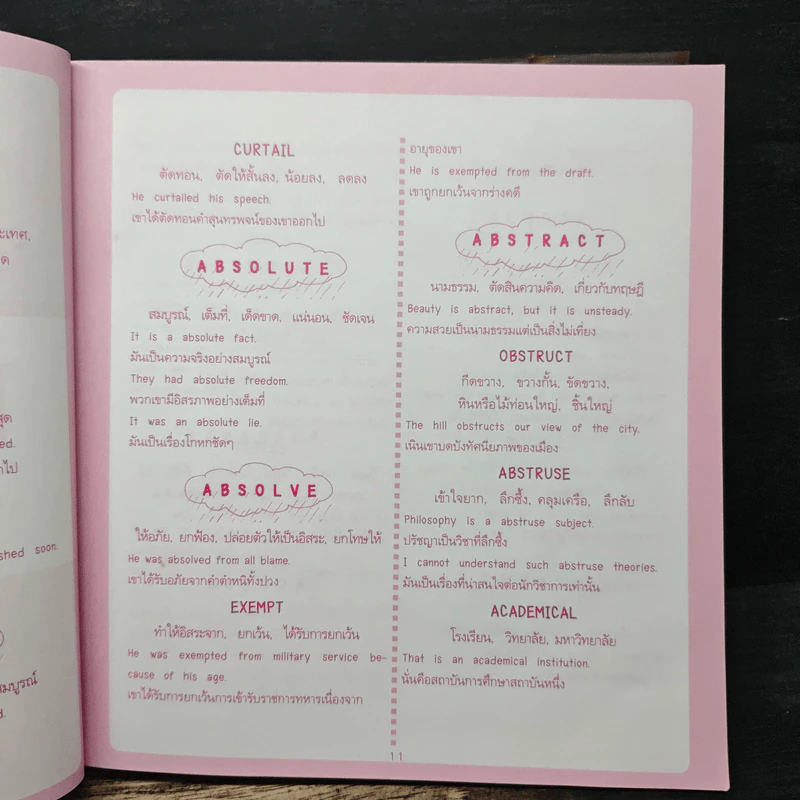 ะเทศ,
ด
สุด
ed.
าไป
shed soon.
สมบูรณ์
d.
CURTAIL
ตัดทอน, ตัดให้สั้นลง, น้อยลง, ลดลง
He curtailed his speech.
เขาได้ตัดทอนคำสุนทรพจน์ของเขาออกไป
ABSOLUTE
สมบูรณ์, เต็มที่, เด็ดขาด, แน่นอน, ชัดเจน
It is a absolute fact.
มันเป็นความจริงอย่างสมบูรณ์
They had absolute freedom.
พวกเขามีอิสรภาพอย่างเต็มที่
It was an absolute lie.
มันเป็นเรื่องโกหกชัดๆ
ABSOLVE
ให้อภัย, ยกฟ้อง, ปล่อยตัวให้เป็นอิสระ, ยกโทษให้
He was absolved from all blame.
เขาได้รับอภัยจากคำตำหนิทั้งปวง
EXEMPT
ทำให้อิสระจาก, ยกเว้น, ได้รับการยกเว้น
He was exempted from military service be-
cause of his age.
เขาได้รับการยกเว้นการเข้ารับราชการทหารเนื่องจาก
อายุของเขา
He is exempted from the draft.
เขาถูกยกเว้นจากร่างคดี
ABSTRACT
นามธรรม, ตัดสินความคิด, เกี่ยวกับทฤษฎี
Beauty is abstract, but it is unsteady.
ความสวยเป็นนามธรรมแต่เป็นสิ่งไม่เที่ยง
OBSTRUCT
กีดขวาง, ขวางกั้น, ขัดขวาง,
หินหรือไม้ท่อนใหญ่, ชิ้นใหญ่
The hill obstructs our view of the city.
เนินเขาบดบังทัศนียภาพของเมือง
ABSTRUSE
เข้าใจยาก, ลึกซึ้ง, คลุมเครือ, ลึกลับ
Philosophy is a abstruse subject.
ปรัชญาเป็นวิชาที่ลึกซึ้ง
I cannot understand such abstruse theories.
มันเป็นเรื่องที่น่าสนใจต่อนักวิชาการเท่านั้น
ACADEMICAL
โรงเรียน, วิทยาลัย, มหาวิทยาลัย
That is an academical institution.
นั่นคือสถาบันการศึกษาสถาบันหนึ่ง
11